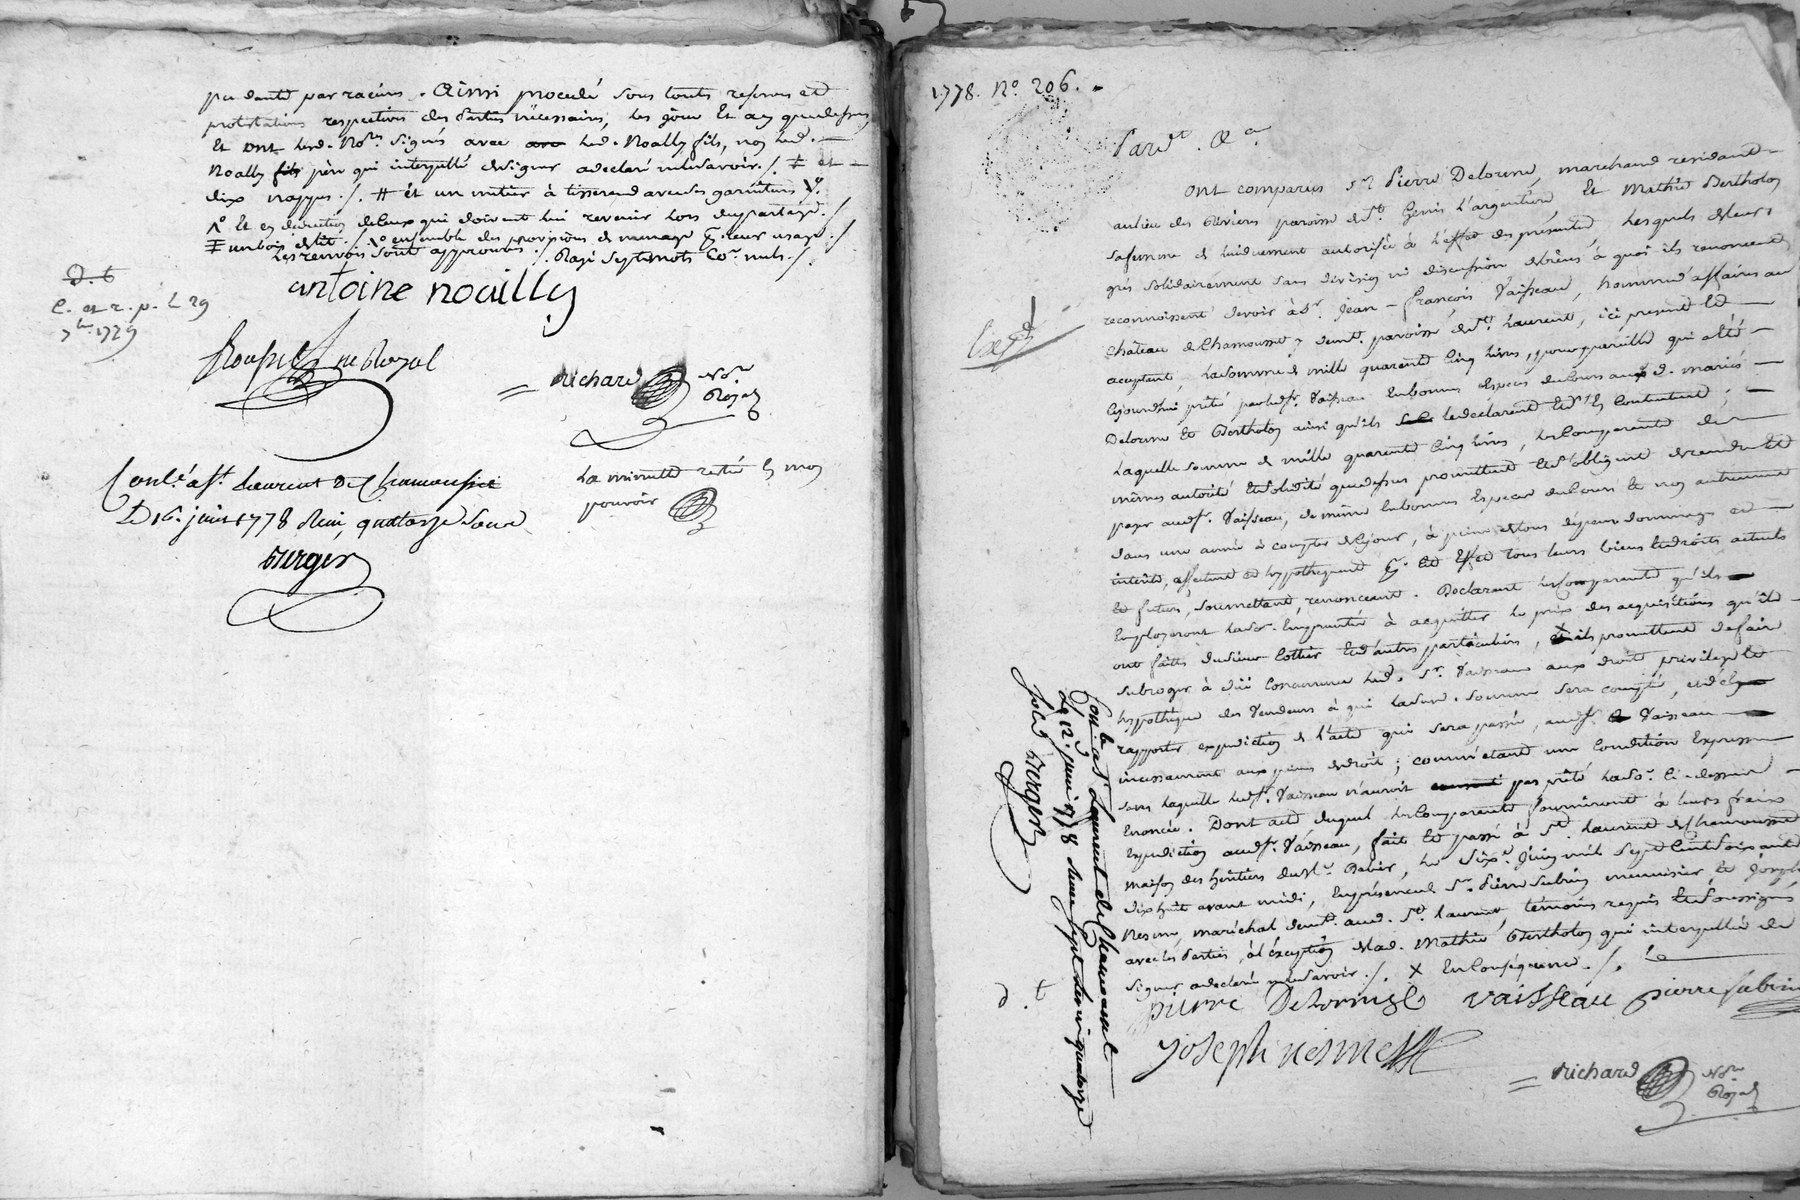 par racines. Ainsi procédé sous touts reserves et
protestations respectives des Parties nécessaires, les jour et an que dessus
Et ont lesd. No.res signés avec led. Noally fils, non led.
Noally père qui interpellé de signer a declaré ne le savoir ./. et
dix nappes ./. # et un métier à tisserand avec ses garnitures
Et en déduction de ceux qui doivent lui revenir hors du partage ./.
un bois de lit ./. ensemble des provisions de menage pr. leur usage ./.
Les renvois sont approuvés ./. Rayé sept mots co.e nuls ./.
D. 6
C. et r. p. L 29
7bre 1779
antoine noailly
ne Royal
Richard No.re
Royal
Conlé. à St. Laurent de Chamousset
Le 16. juin 1778 Reçu quatorze sous
Berger
La minutte restée en mon
pouvoir
1778. No. 206.
Pard.t &a
Ont comparus sr. Pierre Delorme, marchand residant
au lieu des Oliviers paroisse de St. Genis l'argentière, Et Mathie Bertholon
sa femme de lui duement autorisée à l'effet des présentes, Lesquels de leur
gré solidairement sans division ni discussion de biens à quoi ils renoncent
reconnoissent devoir à Sr. Jean-françois Vaisseau, homme d'affaires au
Chateau de Chamousset y demt. paroisse de St. Laurent, ici present et
acceptant, la somme de mille quarente cinq livres, pour pareille qui a été
cejourd'hui prêté par led. Sr. Vaisseau en bonnes espèces du cours aux d. mariés
Delorme et Bertholon ainsi qu'ils le declarent et s'en contentent;
Laquelle somme de mille quarente cinq livres, les Comparents de
mêmes autorité et solidité que dessus promettent et s'obligent de rendre et
payer aud. Sr. Vaisseau, de même en bonnes Especes du Cours et non autrement
dans une année à compter de ce jour, à peine de tous dépens dommages et
intérêts, affectent et hypothequent pr. cet effet tous leurs biens et droits actuels
et futurs, soumettant, renonceant. Declarent les comparents qu'ils
Employeront lad. so. Empruntée à acquitter le prix des acquisitions qu'ils
ont faites du sieur Cottier et d'autres particuliers, ils promettent de faire
subroger à due concurrence led. Sr. Vaisseau aux droits privilege et
hypothèque des Vendeurs à qui lad. somme sera comptée, et d'en
rapporter expedition de l'acte qui sera passé, aud. Sr. Vaisseau
incessamment aux peines de droit; comme étant une Condition Expresse
sans laquelle led. Sr. Vaisseau n'auroit pas prêté lad. so. Ci-dessus
Enoncée. Dont acte duquel les Comparents fourniront à leurs fraix
Expedition aud. Sr. Vaisseau, fait et passé à St. Laurent de Chamousset
maison des héritiers du Sr. Babir, le six.e Juin mil sept Cent soixante
dix huit avant midi, En présence de Sr. Pierre Subrin menuisier et Joseph
Nesme, maréchal demt. aud. St. Laurent, témoins requis et soussignés
avec les Parties, à l'exception de lad. Mathie Bertholon qui interpellée de
signer a declaré ne le savoir ./. X En Conséquence ./.
d. t
pierre Delorme Vaisseau pierre subrin
Joseph nesme
Richard No.re
Royal
Conlé. à St Laurent de Chamousset
Le 12. juin 1778 Reçu sept livres quatorze
sols Berger